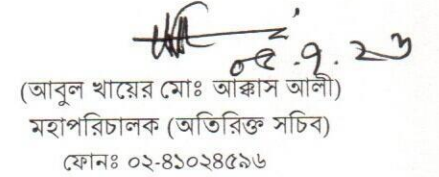 ০৫.৭.২৩
(আবুল খায়ের মোঃ আক্কাস আলী)
মহাপরিচালক (অতিরিক্ত সচিব)
ফোনঃ ০২-৪১০২৪৫৯৬